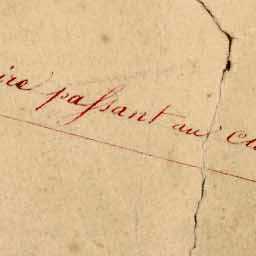 ire passant au